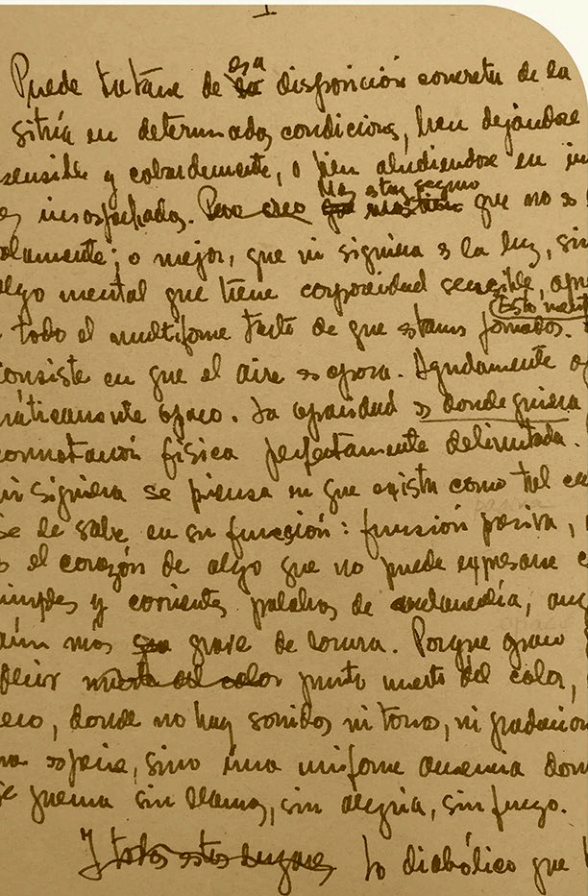 1.
Puede tratarse de esa disposición concreta de la
sitúa en determinadas condiciones, bien dejándose
sensible y cobardemente, o bien aludiéndose en
es insospechados. Pero creo que no es
olamente; o mejor, que ni siquiera es la luz, sin
algo mental que tiene corporeidad sensible,
todo el multiforme de que estamos formados.
consiste en que el aire es opaco. Agudamente
opaco. La opacidad es dondequiera
connotación física perfectamente delimitada.
ni siquiera se piensa en que exista como tal
se de sabe en su función: función pasiva,
es el corazón de algo que no puede expresarse
simples y corrientes palabras de
aún más grave de locura. Porque
decir punto muerto del color,
eco, donde no hay sonidos ni tono, ni
sino una uniforme ausencia
se quema sin llamas, sin alegría, sin fuego.
Y todos estos lugares Lo diabólico que